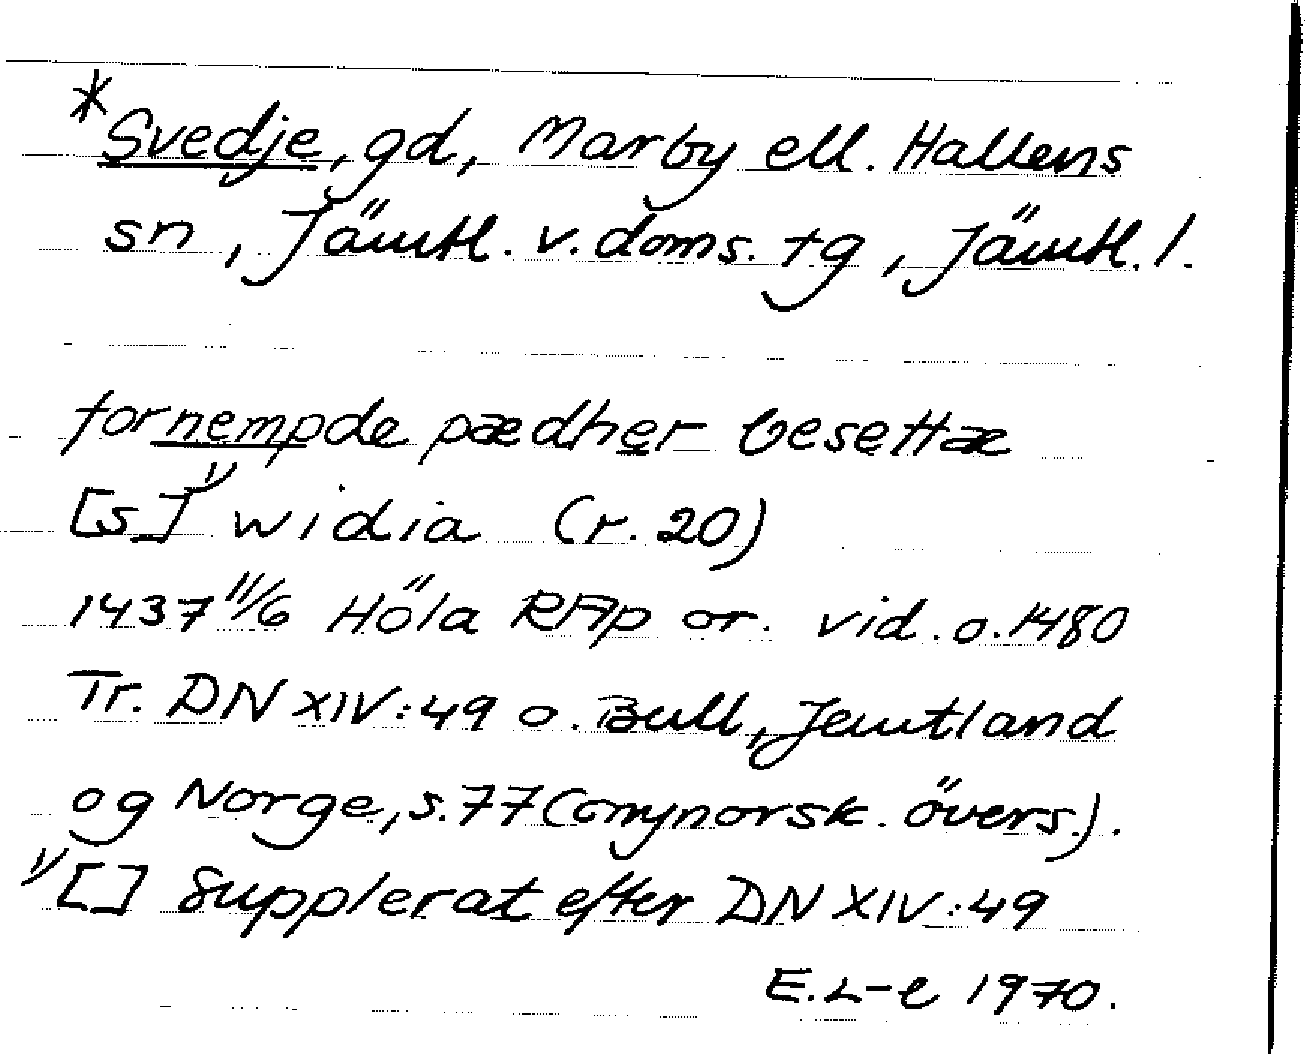 *Svedje, gd, Marby ell. Hallens
sn, Jämtl. v. doms. tg, Jämtl. l.
fornempde pædher besettæ
[s]¹⁾ widia (r. 20)
1437 11/6 Höla RAp or. vid. o. 1480
Tr. DN XIV:49 o. Bull, Jemtland
og Norge, s. 77 (m nynorsk. övers.).
¹⁾ [ ] Supplerat efter DN XIV:49
E. L-e 1970.